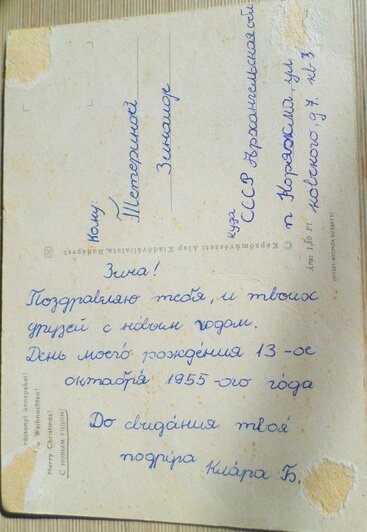 Зина!
Поздравляю тебя, и твоих
друзей с новым годом.
День моего рождения 13-ое
октабря 1955-ого года
До свидания твоя
подріра Клара Б.
Кому
Тетериной
Зинаиде
Куда
СССР Архангельская обл
п Коряжма, ул.
ковского, д 7. кв-3
Képzőművészeti Alap Kiadóvállalata, Budapest
Ára: 1,50 Ft
OFFSET-NYOMDA BUDAPEST
rácsonyi ünnepeket!
Weihnachten!
Merry Christmas!
С новым годом!